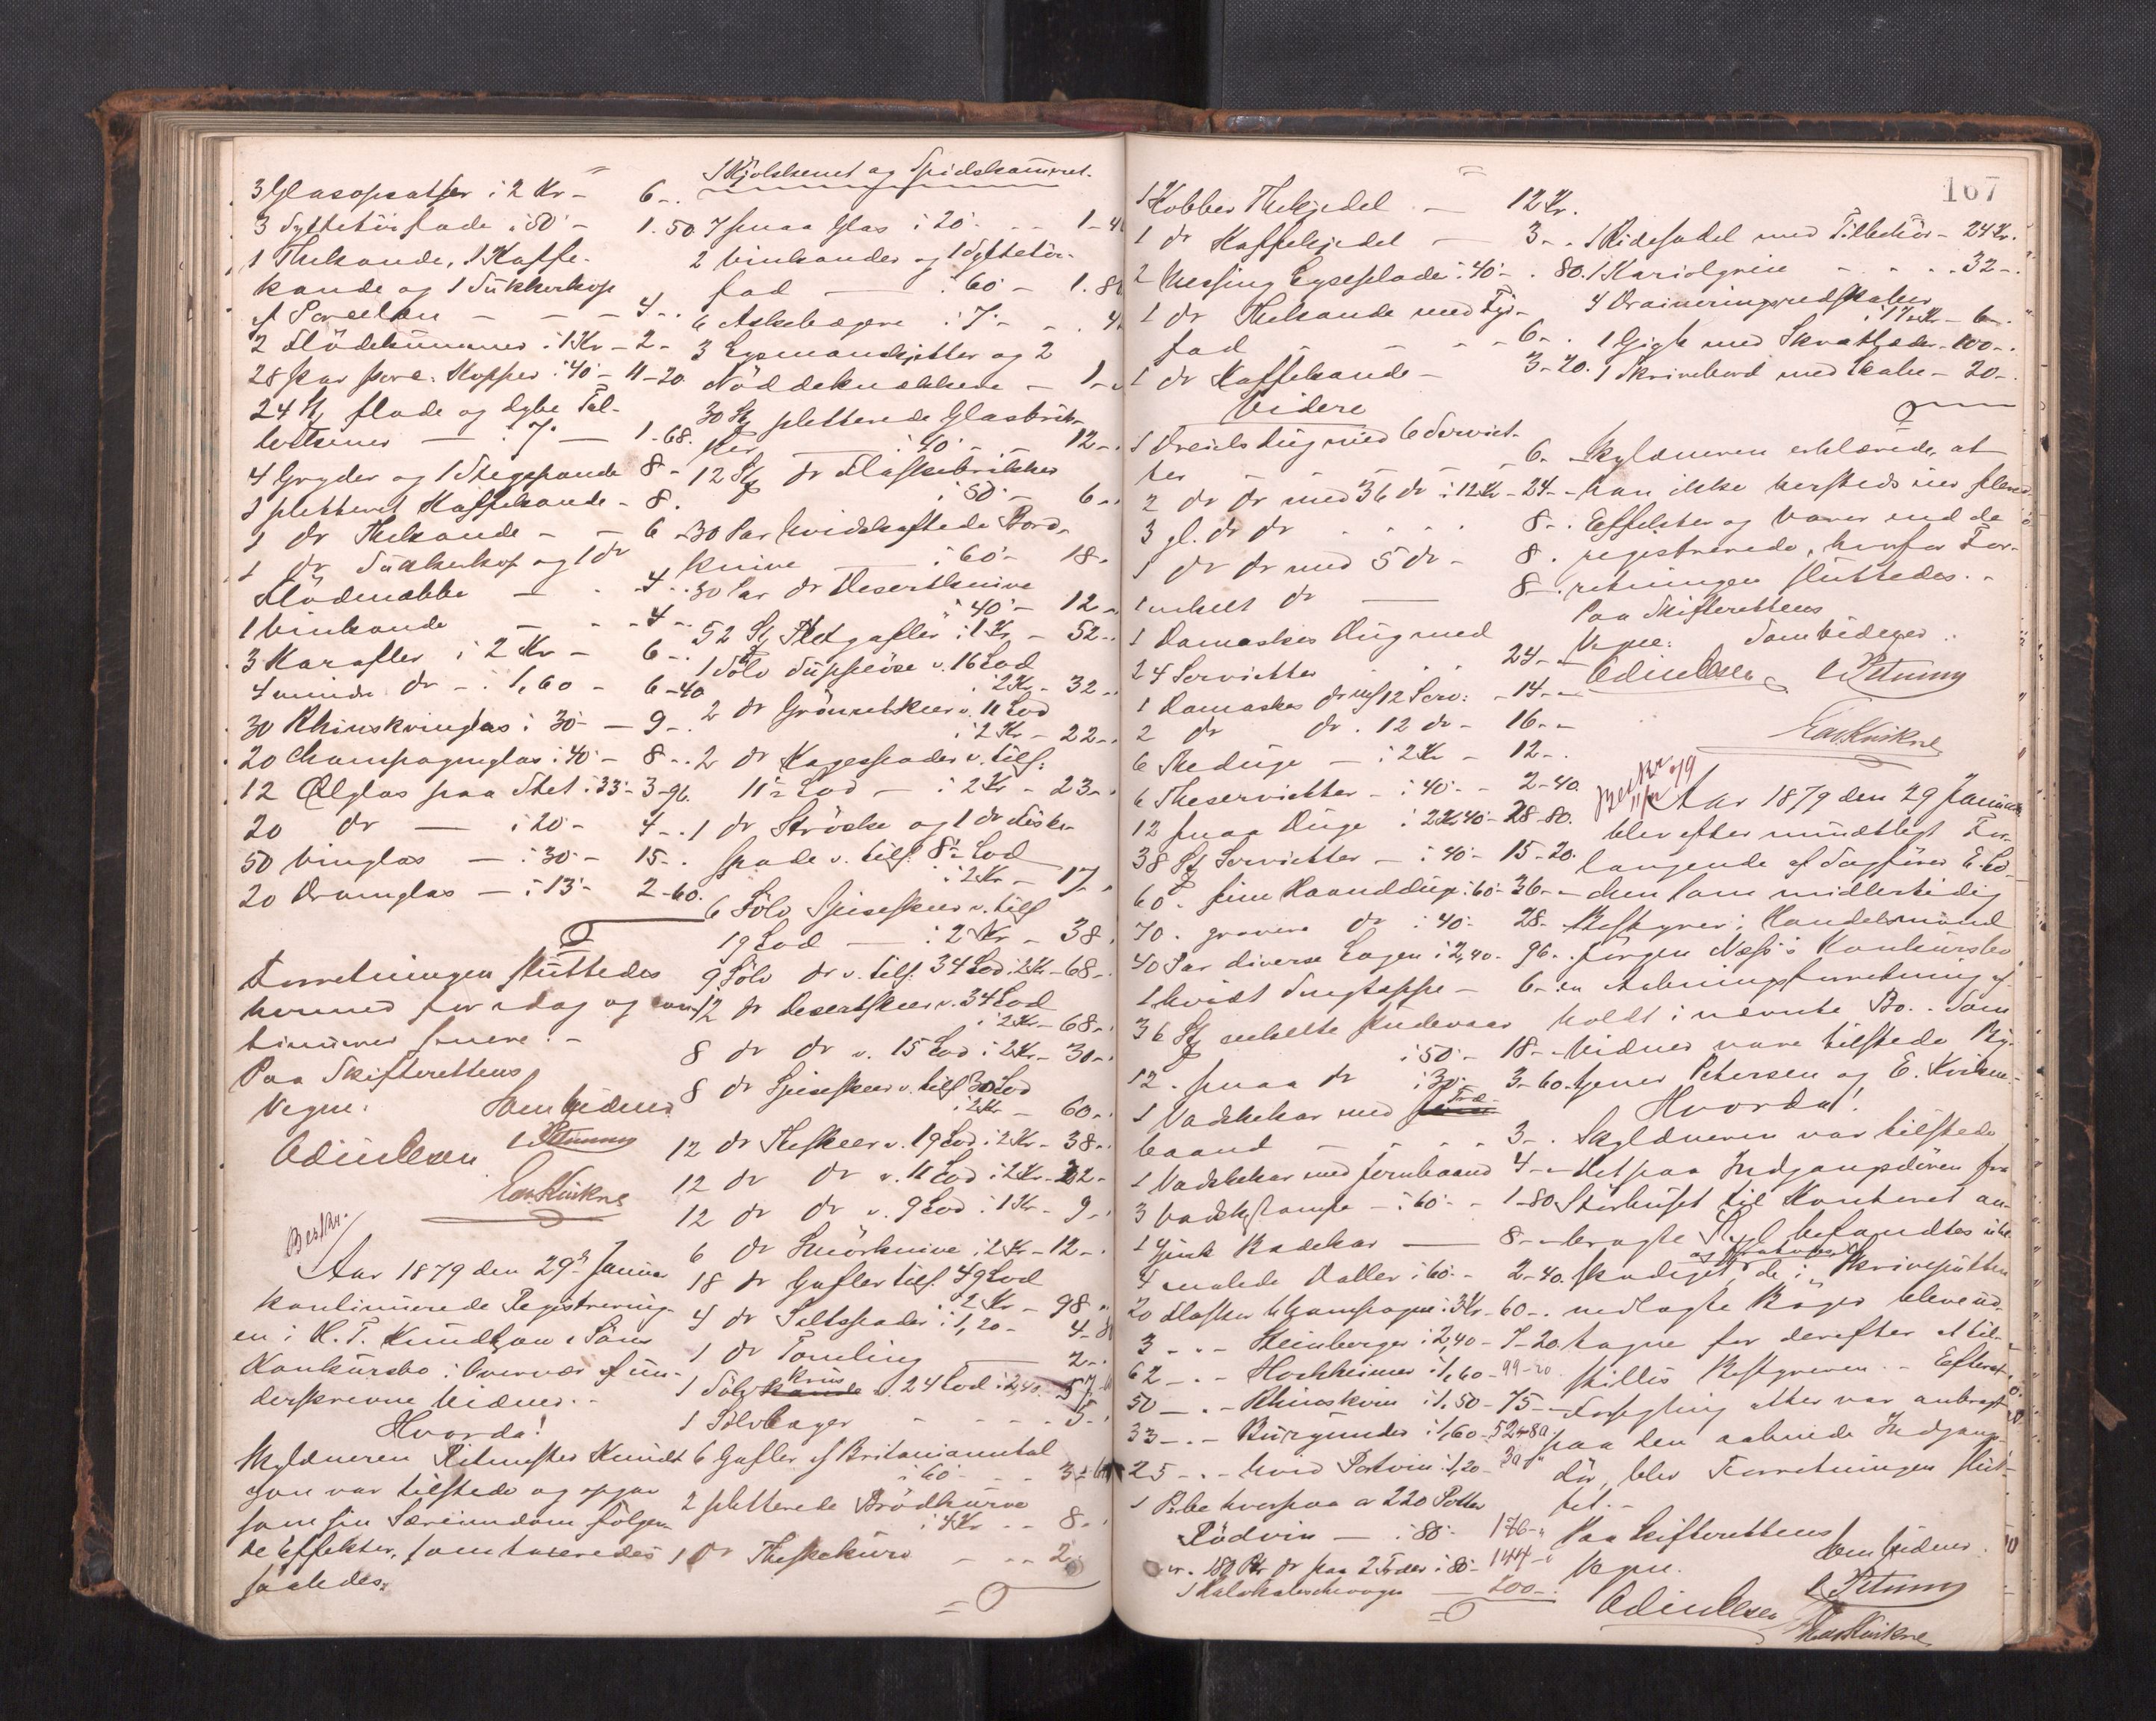 3 Glasopsatser i 2 Kr - 6 -.
3 Syltetöifade i 50 - 1.50
1 Thekande, 1 Kaffe-
kande og 1 Sukkerkop
af Porcelæn - - - 4 -.
2 Flödekummer i 1 Kr - 2 -
28 par porc: Kopper i 40 - 11-20.
24 St flade og dybe Tal-
lerkener - 7 - 1.68.
4 Gryder og 1 Stegepande 8 -
1 pletteret Kaffekande - 8.
1 dr Thekande - - 6 -
1 dr Sukkerkop og 1 dr
Flödenæbbe - 4 -.
1 Vinkande - - - 4 -.
3 Karafler i 2 Kr - 6 -.
4 mindre dr - i 1,60 - 6-40
30 Rhinskvinglas i 30 - 9 -.
20 Champagneglas i 40 - 8 -.
12 Ølglas paa Stet i 33 - 3-96.
20 dr - i 20 - 4 -.
50 Vinglas - i 30 - 15 -.
20 Dramglas - i 13 - 2-60.
Forretningen sluttedes
hermed for idag og kon-
tinueres senere. -
Paa Skifterettens
Vegne. Som Vidner
Odin Olsen C Petersen
Edv Kvikne
Beskr.
Aar 1879 den 29d Januar
kontinuerede Registrering-
en i H. T. Knudtzon & Söns
Konkursbo i Overvær af un-
derskrevne Vidner. -
Hvorda!
Skyldneren Ritmester Knudt-
zon var tilstede og opgav
som sin Særeiendom fölgen-
de Effekter, som taxeredes
saaledes:
I Kjölskenet og Spidskammeret.
7 smaa Glas i 20 - 1-40
2 Vinkander og 1 Syltetöi-
fad - 60 - 1.80
6 Askebægere i 7 - - . 42
3 Lysmanchjetter og 2
Nöddeknækkere - 1 -.
30 St pletterede Glasbrik-
ker - i 40 - 12 -.
12 St dr Flaskebrikker
i 50 - 6 -.
30 Par hvidskaftede Bord-
knive - i 60 - 18 -
30 Par dr Desertknive
i 40 - 12 -.
52 St Pletgafler i 1 Kr - 52 -.
1 Sölv Suppeöse v. 16 Lod
i 2 Kr - 32 -.
2 dr Grönnetskeer v. 11 Lod
i 2 Kr - 22 -.
2 dr Kagespader v. tils:
11½ Lod - i 2 Kr - 23 -.
1 dr Ströske og 1 dr Fiske-
spade v. tils. 8½ Lod
i 2 Kr - 17 -.
6 Sölv Spiseskeer v. tils
19 Lod - i 2 Kr - 38.
9 Sölv dr v. tils. 34 Lod i 2 Kr - 68 -.
12 dr Desertskeer v. 34 Lod
i 2 Kr - 68 -.
8 dr dr v. 15 Lod i 2 Kr - 30 -.
8 dr Spiseskeer v. tils 30 Lod
i 2 Kr - 60 -.
12 dr Theskeer v. 19 Lod i 2 Kr - 38 -.
12 dr dr v. 11 Lod i 2 Kr - 22 -
12 dr dr v. 9 Lod i 1 Kr - 9 -.
6 dr Smörknive i 2 Kr - 12 -.
18 dr Gafler tils. 49 Lod
i 2 Kr - 98 -.
4 dr Saltspader i 1,20 - 4-80
1 dr Tomling - 2 -.
1 Sölvkande Krus v. 24 Lod i 2,40 - 57-
1 Sölvbæger - - - - 5 -.
6 Gafler af Britaniametal
i 60 - - - 3-60
2 pletterede Brödkurve
i 4 Kr - - 8 -.
1 dr Theskekurv - - - 2
167
1 Kobber Thekjedel - 12 Kr.
1 dr Kaffekjedel - 3 -.
2 Messing Lyseplade i 40 - . 80.
1 dr Thekande med Fyr-
fad - - - - 6 -.
1 dr Kaffekande - 3-20.
Videre
1 Dreils Dug med 6 Serviet-
ter - - - - 6 -
2 dr dr med 36 dr i 12 Kr - 24 -.
3 gl. dr dr - - - 8 -.
1 dr dr med 5 dr - 8.
1 enkelt dr - 8 -.
1 Damaskes Dug med
24 Servietter - - - 24 -.
1 Damaskes dr m/ 12 Serv: - 14 -.
2 dr dr. 12 dr - 16 -.
6 Theduge - i 2 Kr - 12 -.
6 Theservietter - i 40 - - 2-40.
12 smaa Duge i 2 Kr 40 - 28-80.
38 St Servietter - i 40 - 15-20.
60 - fine Haandduge i 60 - 36 -.
70 - grovere dr i 40 - 28 -
40 Par diverse Lagen i 2,40 - 96 -.
1 hvidt Sengteppe - 6 -.
36 St enkelte Pudevaar
i 50 - 18 -.
12 - smaa dr i 30 - 3-60.
1 Vadskekar med Træ-
baand - - - - 3 -.
1 Vadskekar med Jernbaand 4 -.
3 Vadskestampe - i 60 - - 1-80
1 Zink Badekar - 8 -.
4 malede Baller i 60 - - 2-40.
20 Flasker Champagne i 3 Kr - 60 -.
3 - - - Steinberger i 2,40 - 7-20.
62 - - - Hochheimer i 1,60 - 99-20
50 - - - Rhinskvin i 1,50 - 75 -
33 - - - Burgunder i 1,60 - 52-80
25 - - - hvid Portvin i 1,20 - 30 -
1 Pibe hvorpaa ca 220 Potter
Rödvin - i 80 - 176 -.
ca. 180 Ptr dr paa 2 Fæder i 80 - 144 -.
1 Halvkaleschevogn - 200 -.
1 Ridesadel med Tilbehör - 24 Kr.
1 Kariolgreie - - - - 32 -.
4 Draineringsredskaber
i 1½ Kr - 6 -.
1 Gigk med Skvatlæder - 100 -.
1 Skrivebord med Skabe - 20 -.
Skyldneren erklærede, at
han ikke hersteds eier flere
Effekter og Varer end de
registrerede, hvorfor For-
retningen sluttedes. -
Paa Skifterettens
Vegne: Som Vidner.
Odin Olsen C Petersen
Edv Kvikne
Beskr. 11/2 79
Aar 1879 den 29 Januar
blev efter mundtligt For-
langende af Sagförer E. Lö-
chen som midlertidig
Bestyrer i Handelsmand
Jörgen Næss's Konkursbo
en Aabningsforretning af-
holdt i nævnte Bo. - Som
Vidner vare tilstede By-
tjener Petersen og E. Kvikne. -
Hvorda!
Skyldneren var tilstede
Det paa Indgangsdören fra
Storhuset til Kontoret an-
bragte Segl befandtes ube-
skadiget, og Protokoller de i Skrivepulten
nedlagte Böger bleve ud-
tagne for derefter at til-
stilles Bestyreren. - Efterat
Forsegling atter var anbragt
paa den aabnede Indgangs-
dör, blev Forretningen slut-
tet. -
Paa Skifterettens
Vegne. Som Vidner.
Odin Olsen C Petersen
Edv Kvikne